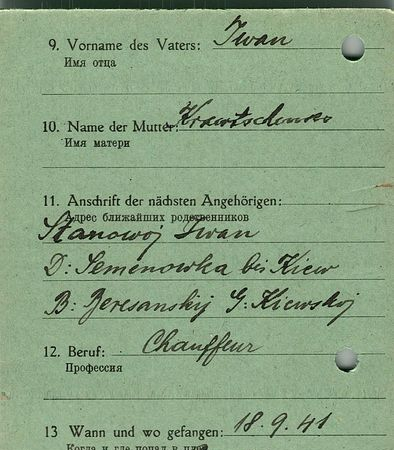 9. Vorname des Vaters: Iwan
Имя отца
10. Name der Mutter: Krawtschenko
Имя матери
11. Anschrift der nächsten Angehörigen:
Адрес ближайших родственников
Stanowoj Iwan
D: Semenowka bis Kiew
B: Beresanskij G: Kiewskoj
12. Beruf: Chauffeur
Профессия
13 Wann und wo gefangen: 18.9.41
Когда и где попал в плен